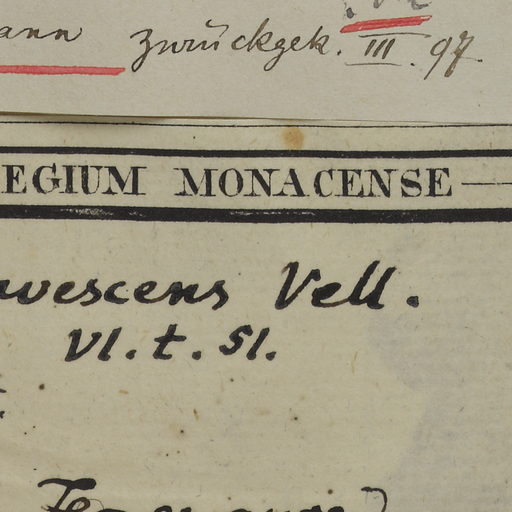 ann zurückgek. III. 97.
EGIUM MONACENSE
vescens Vell.
Vl. t. 51.